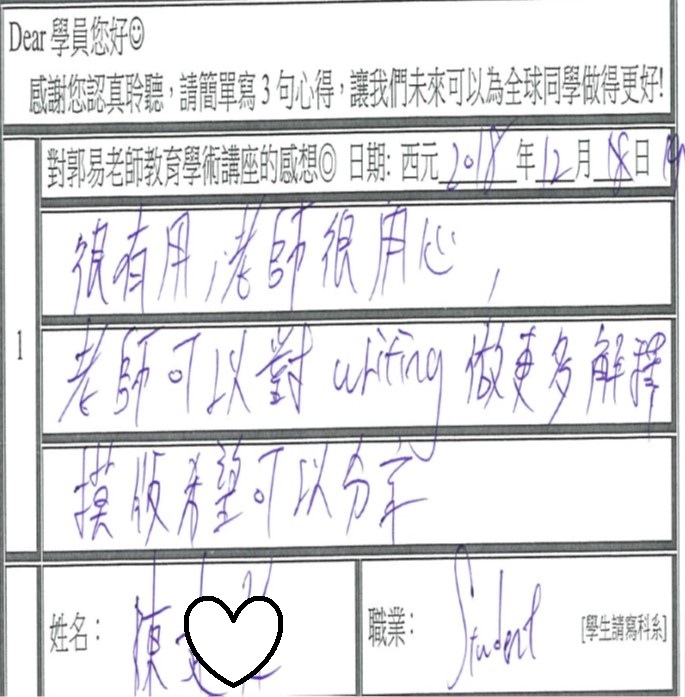 Dear 學員您好☺
感謝您認真聆聽，請簡單寫3句心得，讓我們未來可以為全球同學做得更好!
1
對郭易老師教育學術講座的感想◎ 日期: 西元2018年12月18日
很有用，老師很用心，
老師可以對 writing 做更多解釋
摸版希望可以分享
姓名： 陳
職業： Student [學生請寫科系]